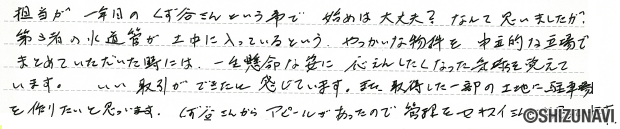 担当が一年目のくず谷さんという事で 始めは大丈夫？なんて思いましたが、
第3者の水道管が土中に入っているという、やっかいな物件を中立的な立場で
まとめていただいた時には、一生懸命な姿に応えんしたくなった気持を覚えて
います。 いい取引ができたと感じています。また取得した一部の土地に駐車場
を作りたいと思っています。くず谷さんからアピールがあったので管理をセキスイさん
©SHIZUNAVI